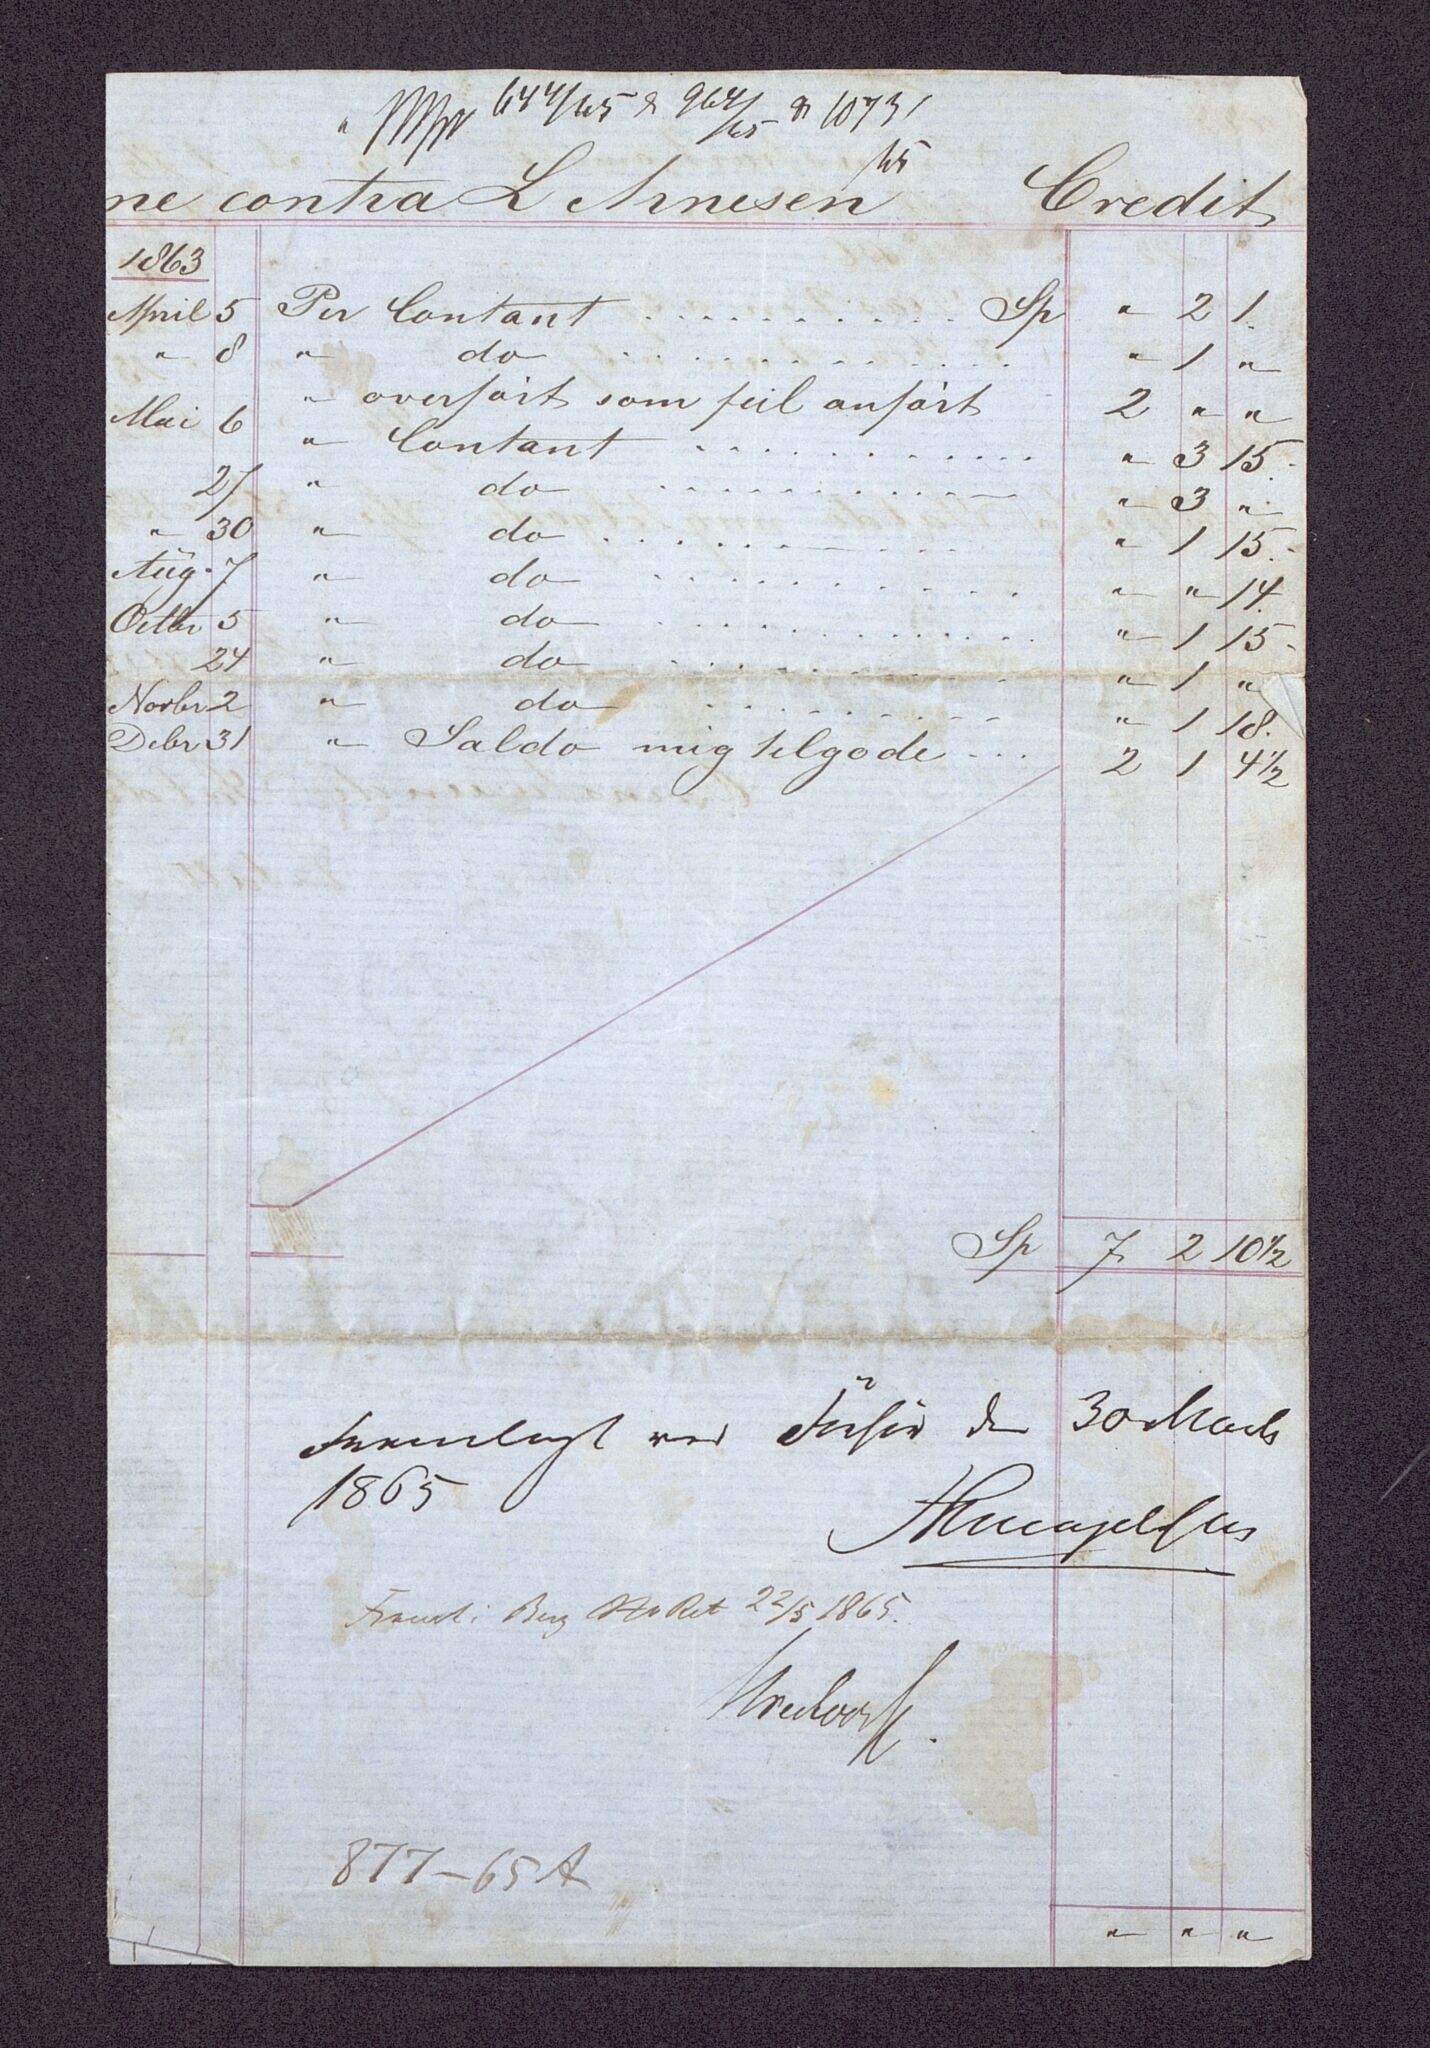 644/65 & 964/65 & 1073/65
ne contra L Arnesen Credit
1863
April 5 Per Contant . . . . . . . . . . Sp " 2 1.
" 8 " do . . . . . . . . . . " 1 "
" overført som feil anført 2 " "
Mai 6 " Contant . . . . . . . . . . " 3 15.
27 " do . . . . . . . . . . " 3 "
" 30 " do . . . . . . . . . . " 1 15.
Aug. 7 " do . . . . . . . . . . " " 14.
Octbr 5 " do . . . . . . . . . . " 1 15.
24 " do . . . . . . . . . . " 1 "
Novbr 2 " do . . . . . . . . . . " 1 18.
Debr 31 " Saldo mig tilgode . . . 2 1 4 1/2
Sp 7 2 10 1/2
Fremlagt ved den 30 Marts
1865
Freml i Berg St Ret 22/5 1865.
877-65 A
" " "